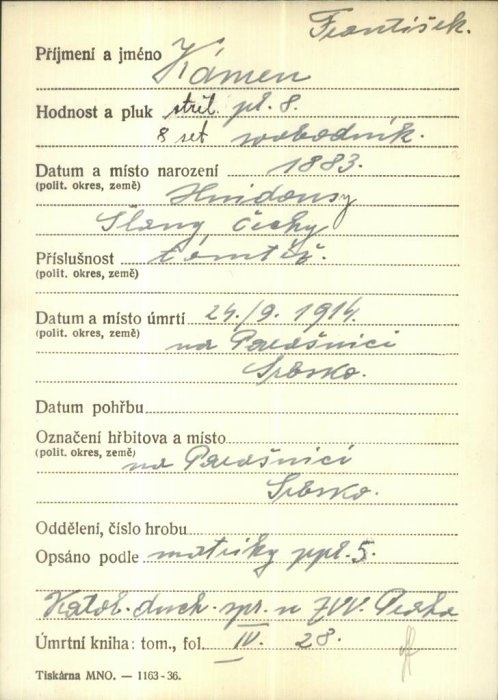 František.
Příjmení a jméno Kámen
Hodnost a pluk střl. pl. 8.
8 set svobodník.
Datum a místo narození 1883.
(polit. okres, země) Hnidousy
Slaný Čechy
Příslušnost tamtéž.
(polit. okres, země)
Datum a místo úmrtí 24./9. 1914.
(polit. okres, země) na Parašnici
Srbsko.
Datum pohřbu
Označení hřbitova a místo
(polit. okres, země) na Parašnici
Srbsko.
Oddělení, číslo hrobu
Opsáno podle matriky ppl. 5.
Katol. duch. spr. u ZVV. Praha
Úmrtní kniha: tom., fol. IV. 28.
Tiskárna MNO. — 1163-36.